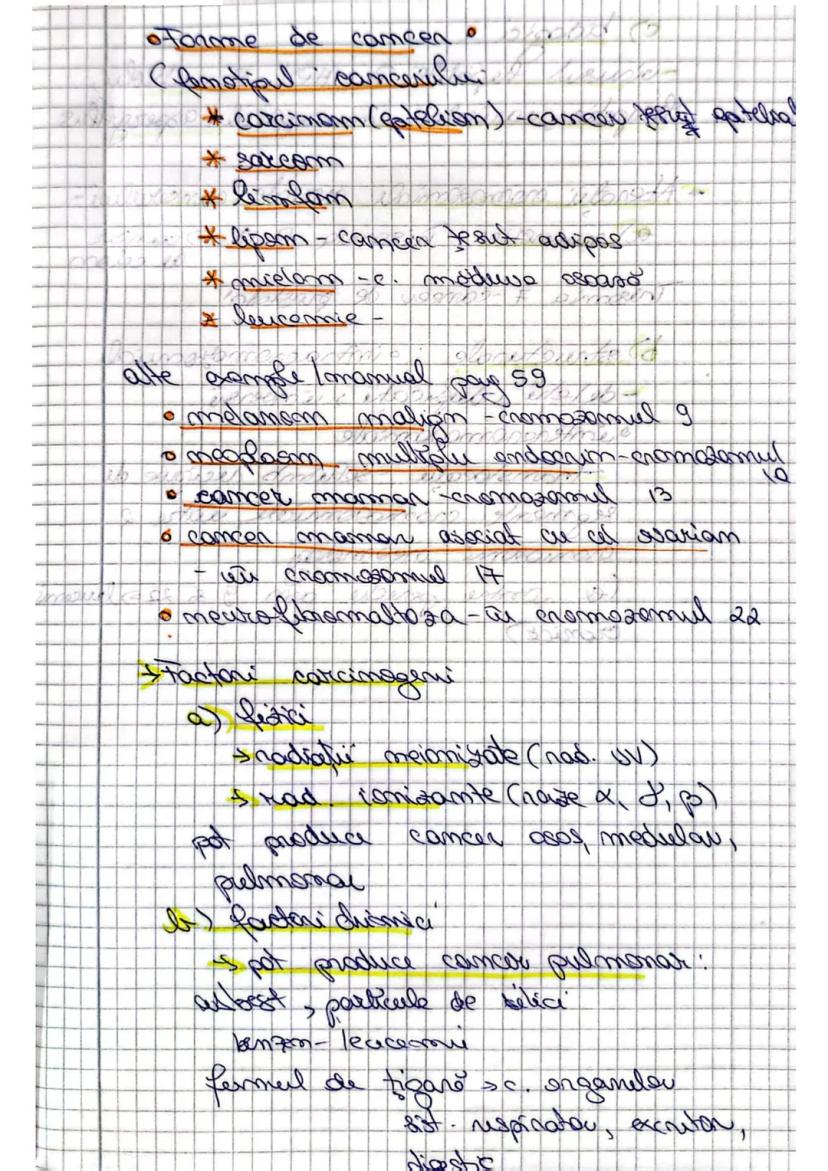 • Forme de cancer •
(fenotipul cancerului
* carcinom (epitelion) - cancer țesut epitelial
* sarcom
* limfom
* lipom - cancer țesut adipos
* mielom - c. măduva osoasă
* leucemie -
alte exemple / manual pag 59
• melanom malign - cromozomul 9
• neoplasm multiplu endocrin - cromozomul
10
• cancer mamar - cromozomul 13
• cancer mamar asociat cu cel ovarian
- în cromozomul 17
• neurofibromatoza - în cromozomul 22
→ Factori carcinogeni
a) fizici
→ radiații neionizate (rad. UV)
→ rad. ionizante (raze α, γ, β)
pot produce cancer osos, medular,
pulmonar
b) factori chimici
→ pot produce cancer pulmonar:
asbest, particule de silici
benzen - leucemii
fumul de țigară → c. organelor
sist. respirator, excretor,
digestiv